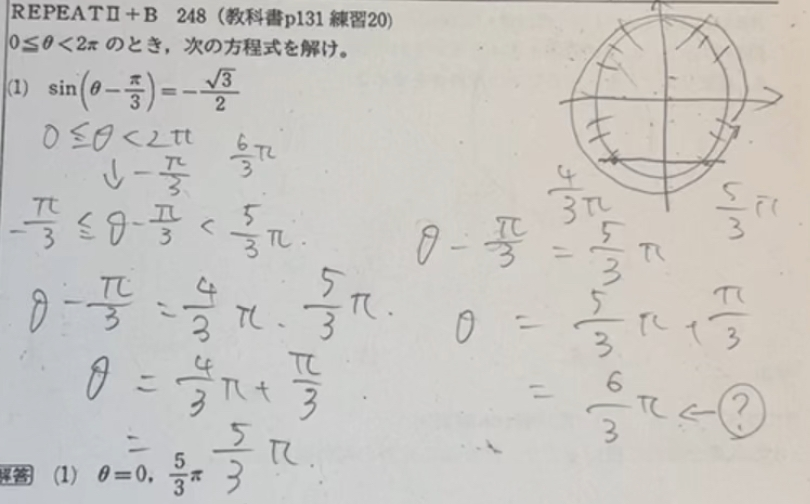 REPEATⅡ+B 248（教科書p131 練習20）
0≦θ<2π のとき，次の方程式を解け。
(1) sin(θ-π/3)=-√3/2
0≦θ<2π
↓ -π/3
6/3π
-π/3≦θ-π/3<5/3π.
θ-π/3=4/3π、5/3π.
θ=4/3π+π/3
=5/3π.
4/3π
5/3π
θ-π/3=5/3π
θ=5/3π+π/3
=6/3π←?
解答 (1) θ=0，5/3π